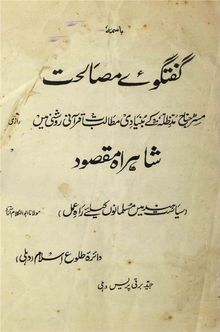 باسمہ
گفتگوئے مصالحت
مسٹر جناح مدظلہ کے بنیادی مطالبات قرآنی روشنی میں رازی
شاہراہ مقصود
(سیاست ہند میں مسلمانوں کیلئے راہِ عمل) مولانا ابوالکلام آزاد
دائرہ طلوع اسلام (دہلی)
جید برقی پریس دہلی